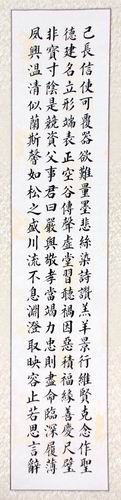 己長信使可覆器欲難量墨悲絲染詩讚羔羊景行維賢克念作聖
德建名立形端表正空谷傳聲虛堂習聽禍因惡積福緣善慶尺璧
非寶寸陰是競資父事君曰嚴與敬孝當竭力忠則盡命臨深履薄
夙興溫清似蘭斯馨如松之盛川流不息淵澄取映容止若思言辭